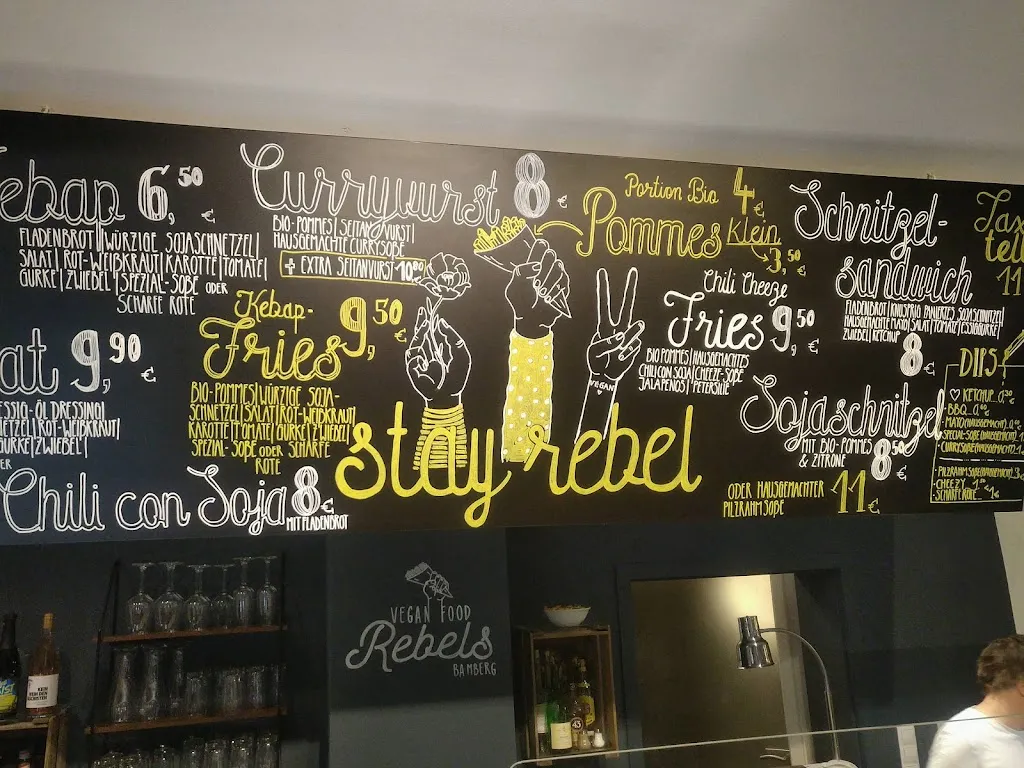 ebap 6,50 €
FLADENBROT|WÜRZIGE SOJASCHNETZEL|
SALAT|ROT-WEIßKRAUT|KAROTTE|TOMATE|
GURKE|ZWIEBEL|SPEZIAL-SOßE ODER
SCHARFE ROTE
at 9,90 €
ESSIG-ÖL DRESSING|
NETZEL|ROT-WEIßKRAUT|
GURKE|ZWIEBEL|
ER
Chili con Soja 8 €
MIT FLADENBROT
Currywurst 8 €
BIO-POMMES|SEITANWURST|
HAUSGEMACHTE CURRYSOßE
+ EXTRA SEITANWURST 10,80
Kebap-
Fries 9,50 €
BIO-POMMES|WÜRZIGE SOJA-
SCHNETZEL|SALAT|ROT-WEIßKRAUT|
KAROTTE|TOMATE|GURKE|ZWIEBEL|
SPEZIAL-SOßE ODER SCHARFE
ROTE
VEGAN
stay rebel
Portion Bio 4 €
Pommes Klein
3,50 €
Chili Cheeze
Fries 9,50 €
BIO POMMES|HAUSGEMACHTES
CHILI CON SOJA|CHEEZE-SOßE
JALAPEÑOS|PETERSILIE
Schnitzel-
sandwich
FLADENBROT|KNUSPRIG PANIERTES SOJASCHNITZEL|
HAUSGEMACHTE MAYO|SALAT|TOMATE|ESSIGGURKE|
ZWIEBEL|KETCHUP
8 €
Sojaschnitzel
MIT BIO-POMMES
& ZITRONE 8,50 €
ODER HAUSGEMACHTER
PILZRAHMSOßE 11 €
tell
11
DIPS
KETCHUP
BBQ
MAYO (HAUSGEMACHT)
SPECIAL-SOßE (HAUSGEMACHT)
CURRYSOßE (HAUSGEMACHT)
PILZRAHMSOßE
CHEEZY
SCHARFE ROTE
VEGAN FOOD
Rebels
BAMBERG
43